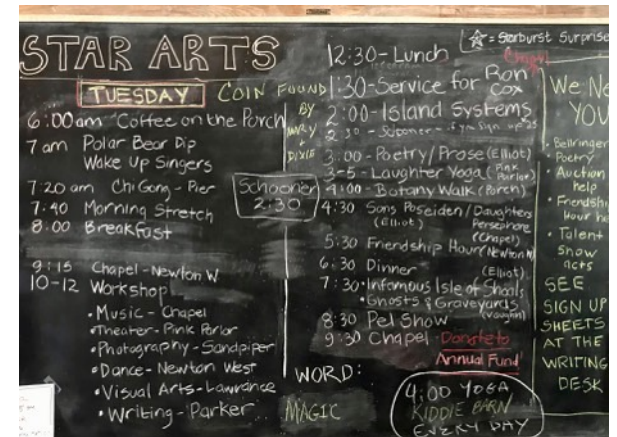 STAR ARTS
TUESDAY
COIN FOUND
BY
MARY
+
DIXIE
6:00am Coffee on the Porch
7am Polar Bear Dip
Wake Up Singers
7:20 am Chi Gong - Pier
7:40 Morning Stretch
8:00 Breakfast
9:15 Chapel - Newton W
10-12 Workshop
•Music - Chapel
•Theater - Pink Parlor
•Photography - Sandpiper
•Dance - Newton West
•Visual Arts - Lawrance
•Writing - Parker
Schooner
2:30
WORD:
MAGIC
☆ = Starburst Surprise
12:30 - Lunch
1:30 - Service for Ron
Cox
2:00 - Island Systems
2:30 - Schooner - if you sign up
3:00 - Poetry/Prose (Elliot)
3-5 - Laughter Yoga (Pink
Parlor)
4:00 - Botany Walk (Porch)
4:30 Sons Poseiden/Daughters
(Elliot) Persephone
(Chapel)
5:30 Friendship Hour (Newton W)
6:30 Dinner
(Elliot)
7:30 •Infamous Isle of Shoals
•Ghosts & Graveyards
(Vaughn)
8:30 Pel Show
9:30 Chapel Donate to
Annual Fund
4:00 YOGA
KIDDIE BARN
EVERY DAY
We Ne
YOU
• Bellringer
• Poetry
• Auction
help
• Friendship
Hour he
• Talent
Show
acts
SEE
SIGN UP
SHEETS
AT THE
WRITING
DESK